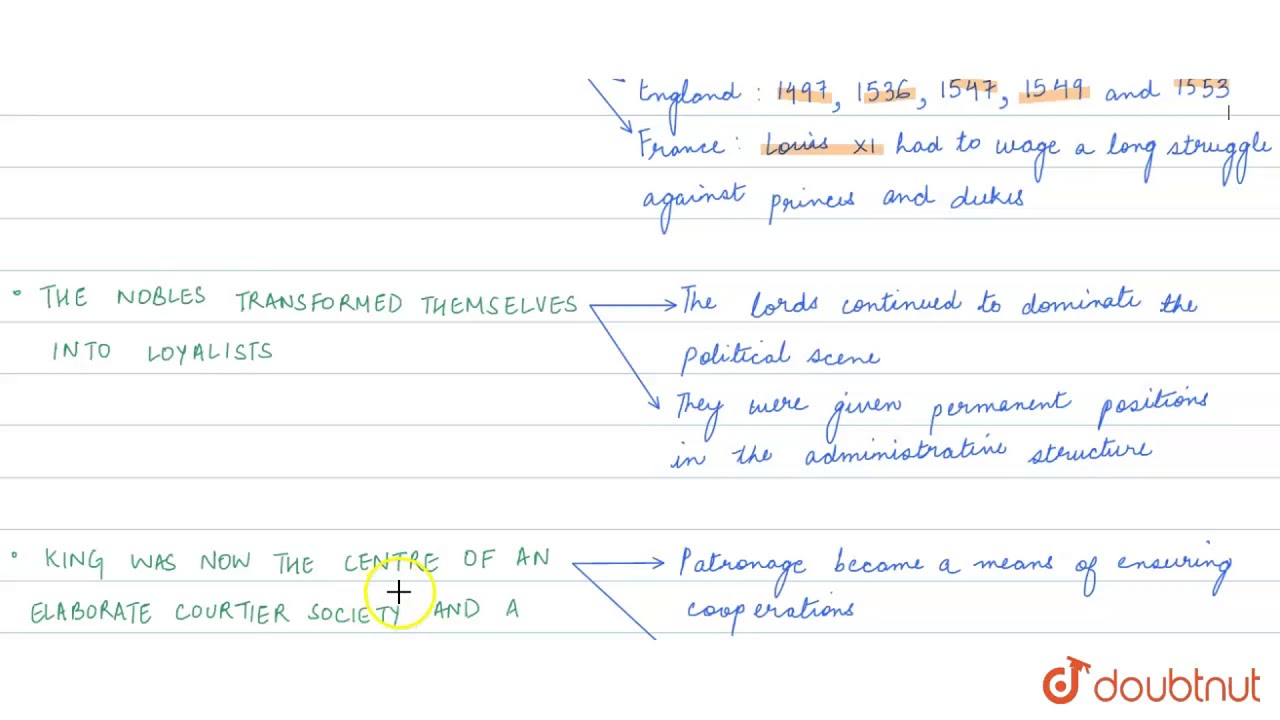 England : 1497, 1536, 1547, 1549 and 1553
France : Louis XI had to wage a long struggle
against princes and dukes
• THE NOBLES TRANSFORMED THEMSELVES
INTO LOYALISTS
The lords continued to dominate the
political scene
They were given permanent positions
in the administrative structure
• KING WAS NOW THE CENTRE OF AN
ELABORATE COURTIER SOCIETY AND A
Patronage became a means of ensuring
cooperations
doubtnut